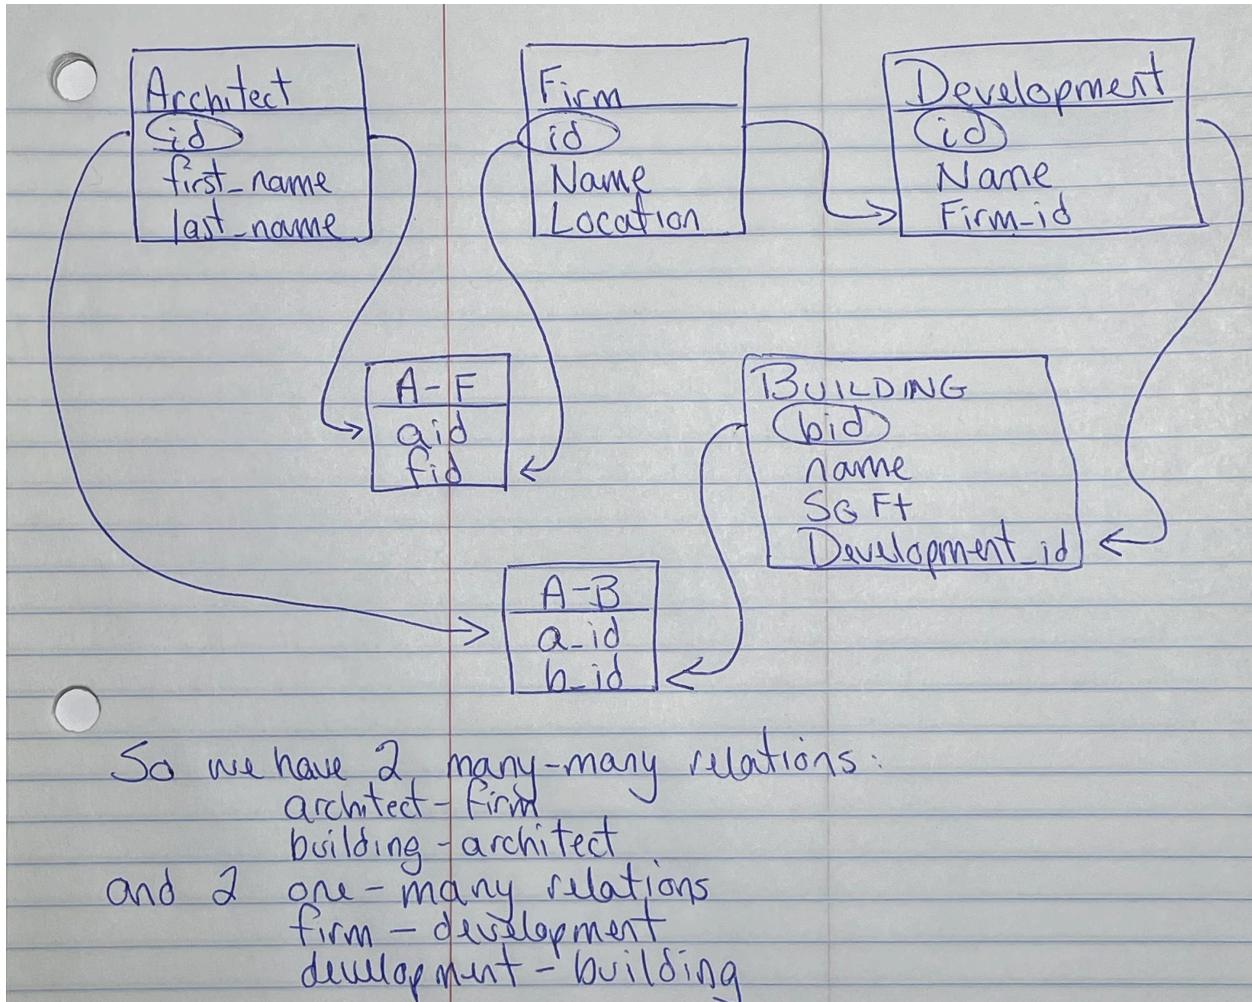 Architect
id
first_name
last_name
Firm
id
Name
Location
Development
id
Name
Firm_id
A-F
aid
fid
BUILDING
bid
name
SQ Ft
Development_id
A-B
a_id
b_id
So we have 2 many-many relations:
architect - firm
building - architect
and 2 one-many relations
firm - development
development - building